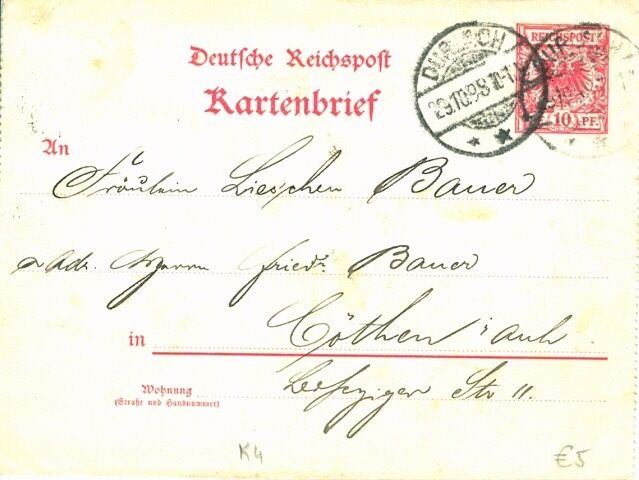 Deutsche Reichspost
Kartenbrief
DURLACH
29.10.98
REICHSPOST
10 PF.
An
Fräulein Lieschen Bauer
Adr. Herrn Friedr. Bauer
in Cöthen i anh.
Wohnung
(Straße und Hausnummer)
Leipziger Str 11.
K4 €5